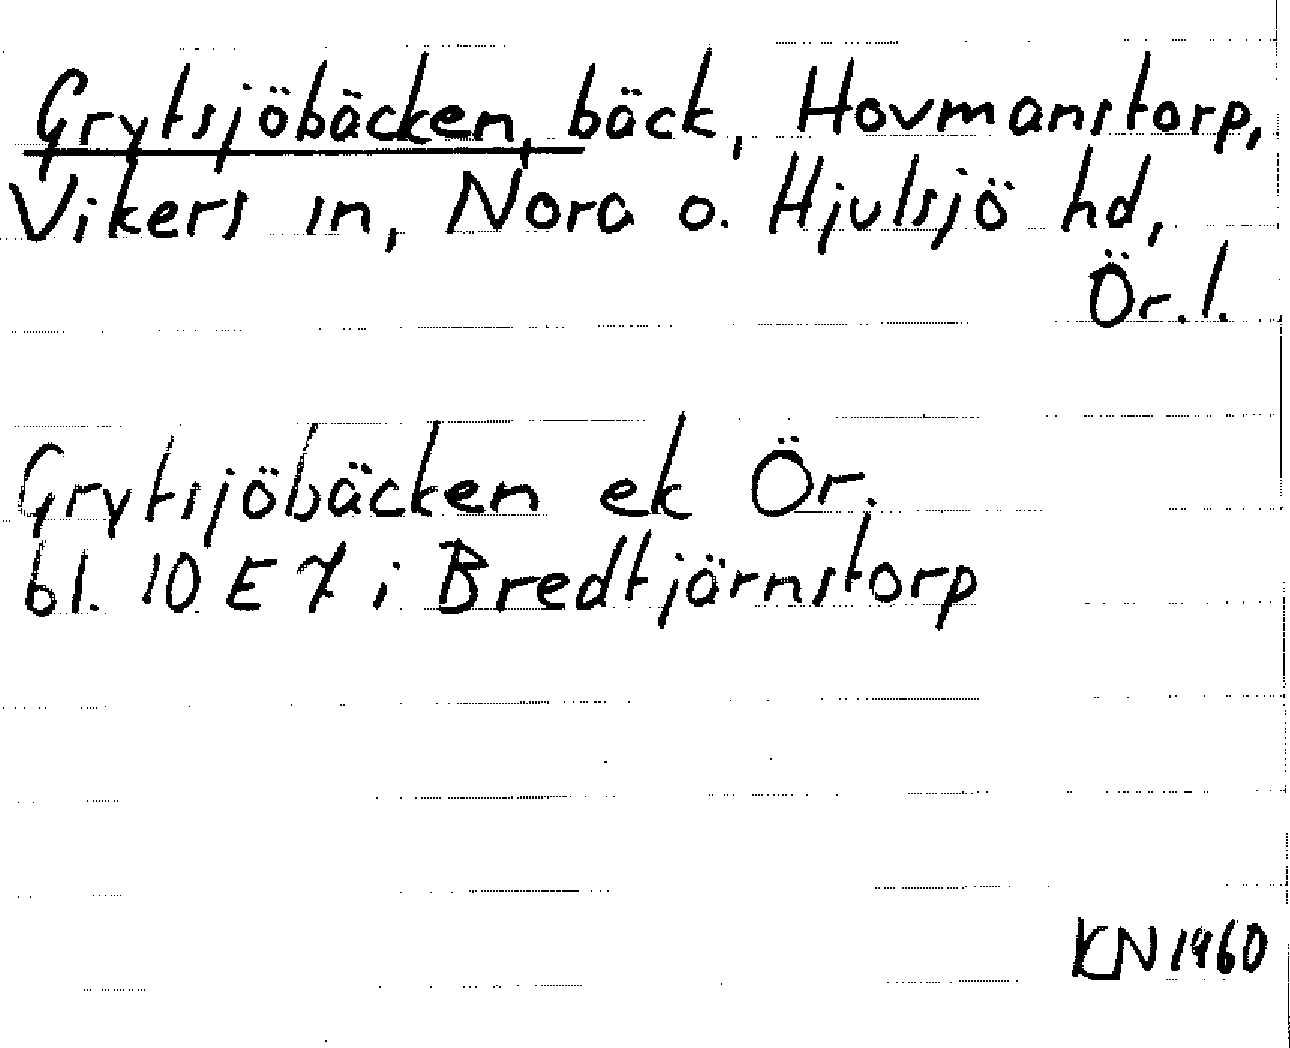 Grytsjöbäcken, bäck, Hovmanstorp,
Vikers sn, Nora o. Hjulsjö hd,
Ör. l.
Grytsjöbäcken ek Ör.
bl. 10 E 7 i Bredtjärnstorp
KN 1960